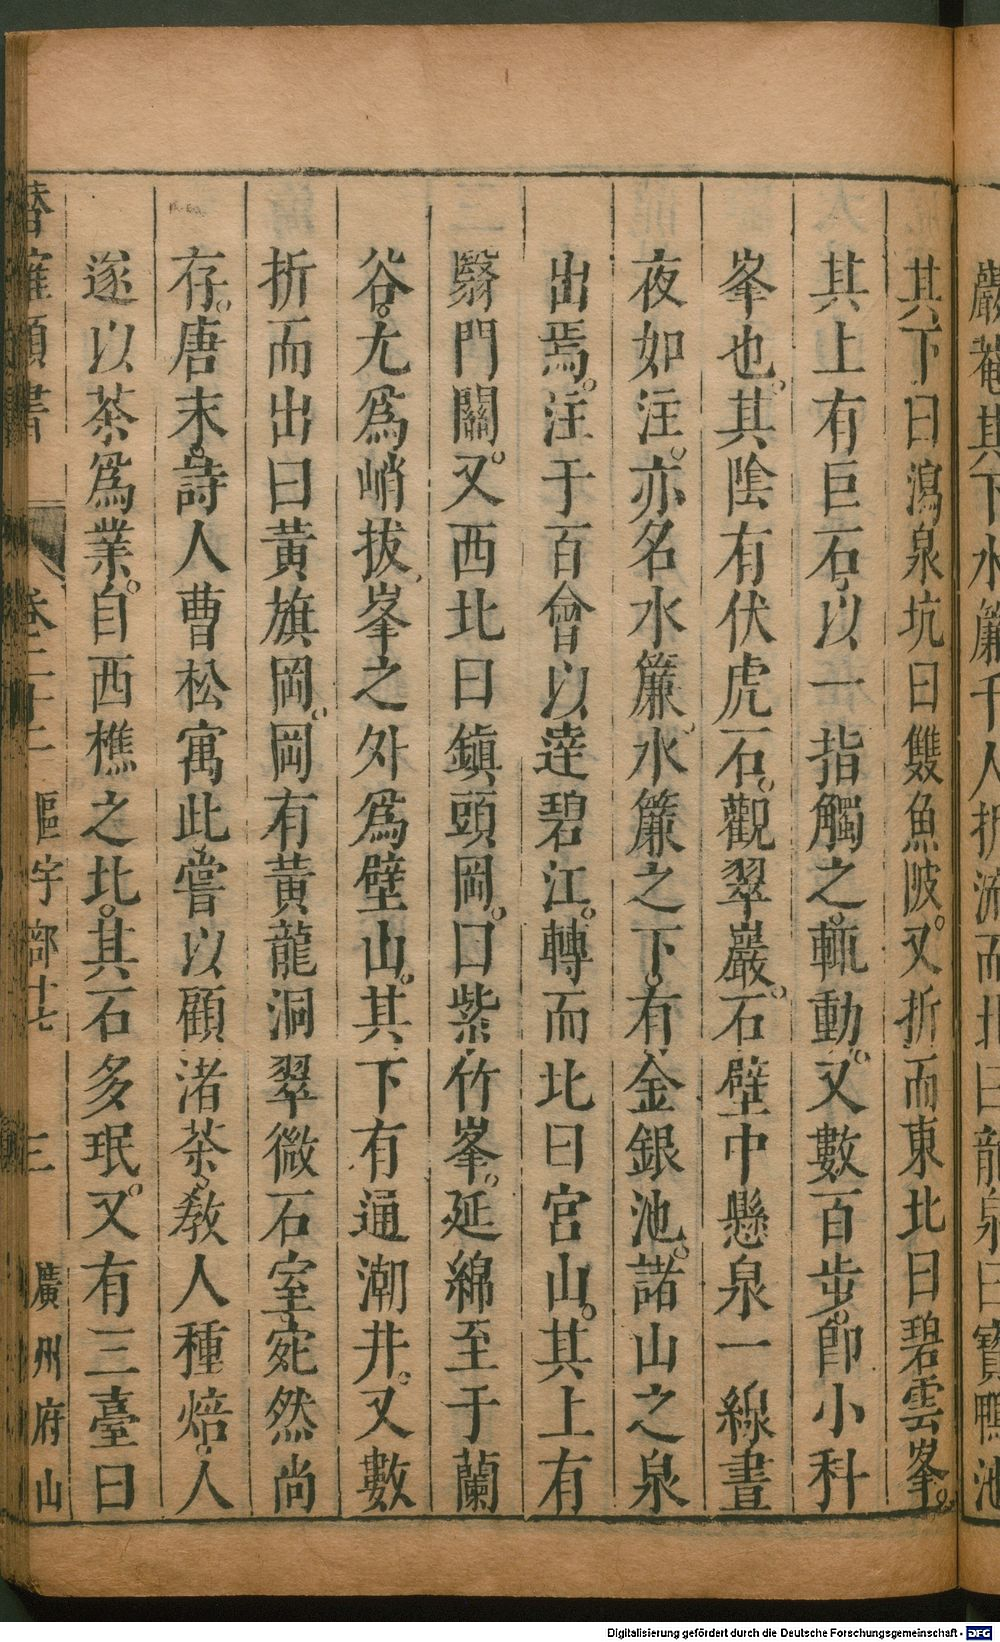 巖菴其下水簾千人折流而北曰龍泉曰寶鴨池
其下曰瀉泉坑曰雙魚陂。又折而東北曰碧雲峯。
其上有巨石以一指觸之。輒動。又數百步。卽小科
峯也。其陰有伏虎石。觀翠巖。石壁中懸泉一線晝
夜如注。亦名水簾。水簾之下。有金銀池。諸山之泉
出焉。注于百會以達碧江。轉而北曰宮山。其上有
翳門關。又西北曰鎮頭岡。曰紫竹峯。延綿至于蘭
谷。尤爲峭拔。峯之外爲壁山。其下有通潮井。又數
折而出曰黃旗岡。岡有黃龍洞翠微石室宛然尚
存。唐末。詩人曹松寓此。嘗以顧渚茶。敎人種焙。人
遂以茶爲業。自西樵之北。其石多珉。又有三臺曰
卷二十二 區宇部十七 三 廣州府山
Digitalisierung gefördert durch die Deutsche Forschungsgemeinschaft - DFG